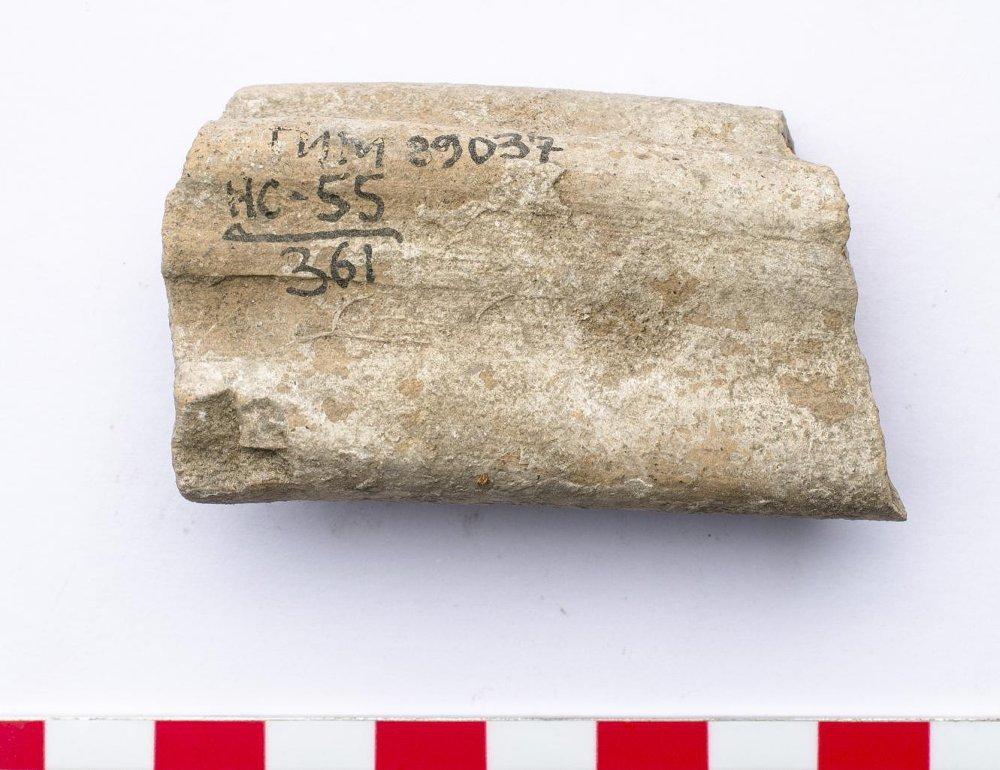 ГИМ 89037
НС-55
361